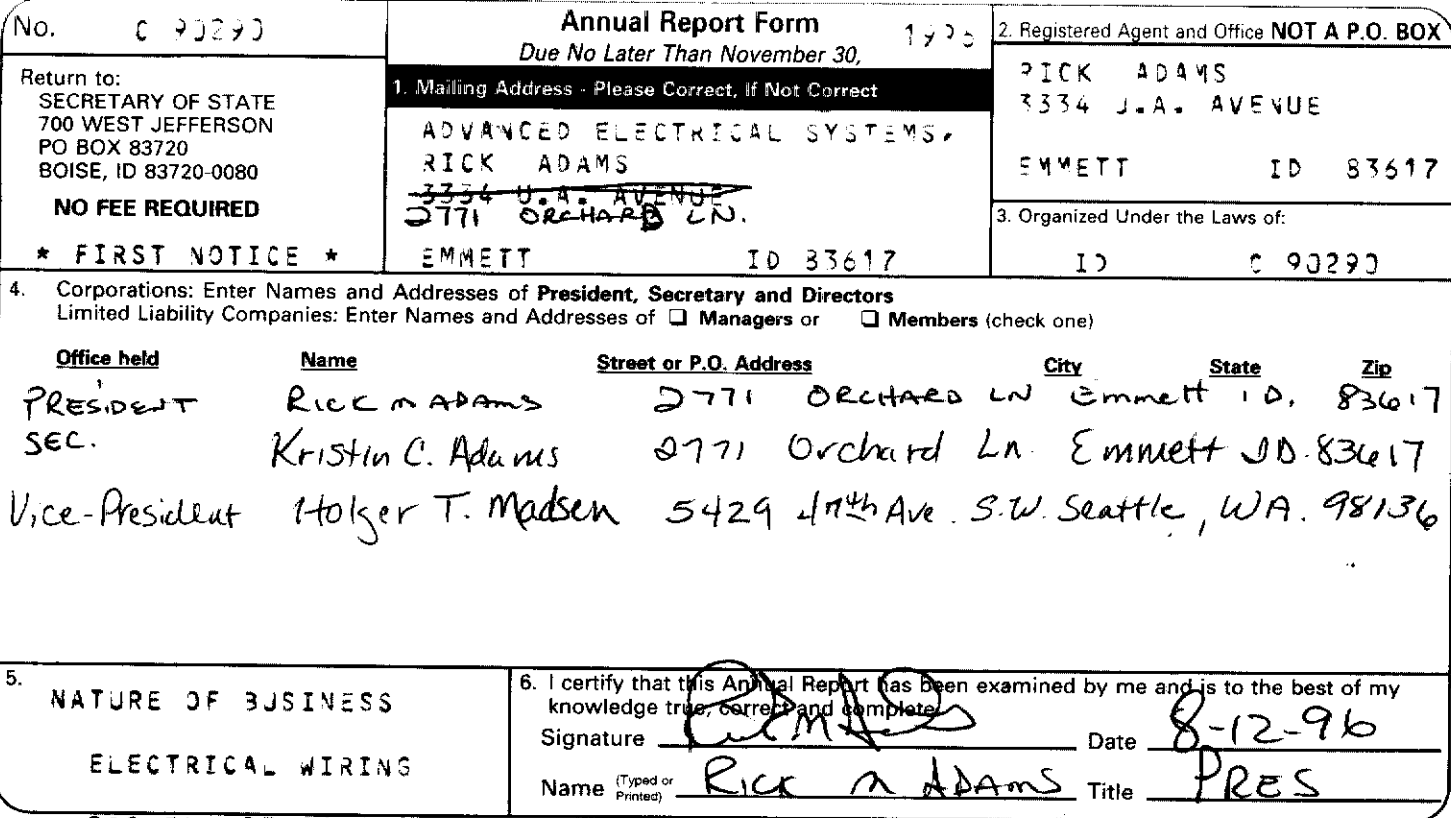 No. C 90290
Annual Report Form 1996
Due No Later Than November 30,
Return to:
SECRETARY OF STATE
700 WEST JEFFERSON
PO BOX 83720
BOISE, ID 83720-0080
NO FEE REQUIRED
* FIRST NOTICE *
1. Mailing Address - Please Correct, If Not Correct
ADVANCED ELECTRICAL SYSTEMS,
RICK ADAMS
3334 U.A. AVENUE
2771 ORCHARD LN.
EMMETT ID 83617
2. Registered Agent and Office NOT A P.O. BOX
RICK ADAMS
3334 J.A. AVENUE
EMMETT ID 83617
3. Organized Under the Laws of:
ID C 90290
4. Corporations: Enter Names and Addresses of President, Secretary and Directors
Limited Liability Companies: Enter Names and Addresses of ☐ Managers or ☐ Members (check one)
Office held Name Street or P.O. Address City State Zip
PRESIDENT RICK M ADAMS 2771 ORCHARD LN Emmett ID. 83617
SEC. Kristin C. Adams 2771 Orchard Ln. Emmett ID. 83617
Vice-President Holger T. Madsen 5429 Ave. S.W. Seattle, WA. 98136
5. NATURE OF BUSINESS
ELECTRICAL WIRING
6. I certify that this Annual Report has been examined by me and is to the best of my
knowledge true, correct and complete.
Signature Date 8-12-96
Name (Typed or Printed) RICK M ADAMS Title PRES